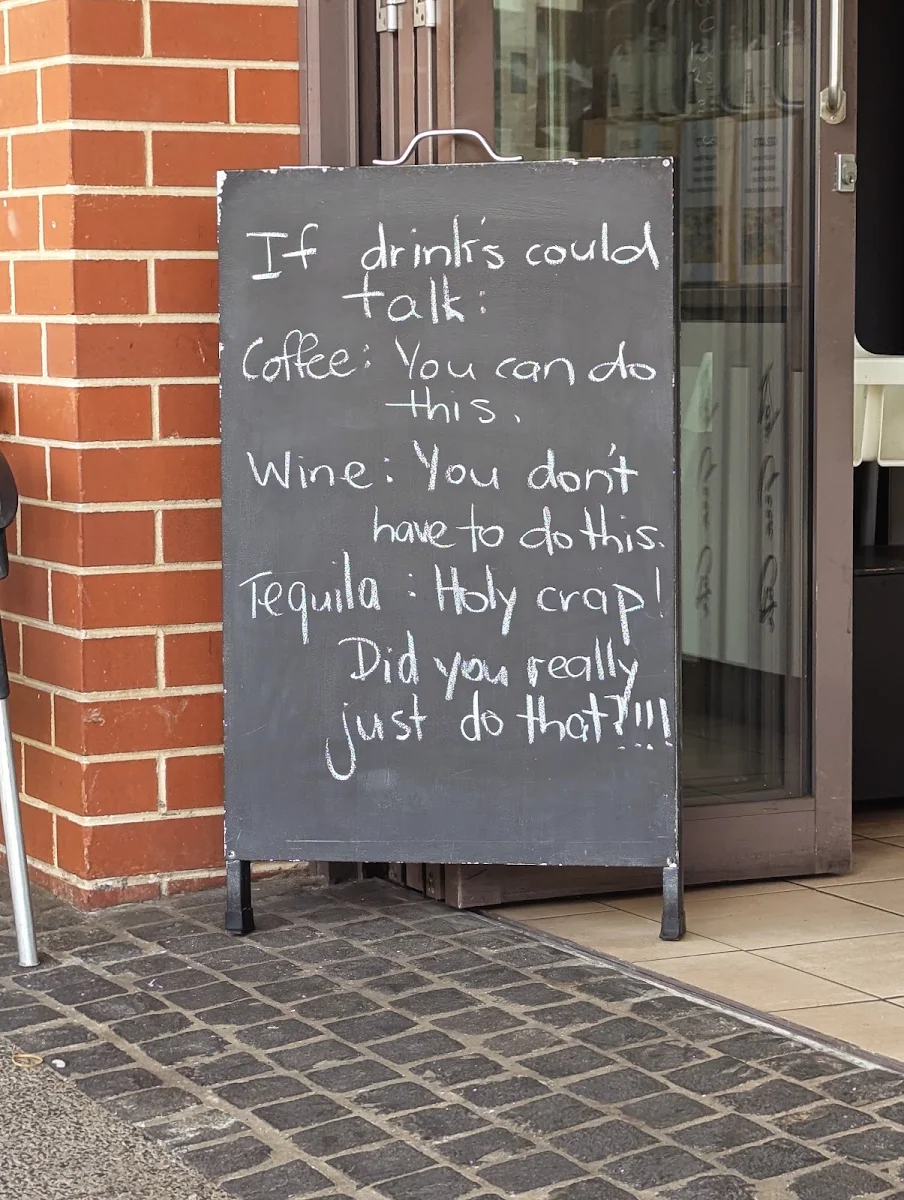 If drink's could
talk:
Coffee: You can do
this.
Wine: You don't
have to do this.
Tequila: Holy crap!
Did you really
just do that?!!!